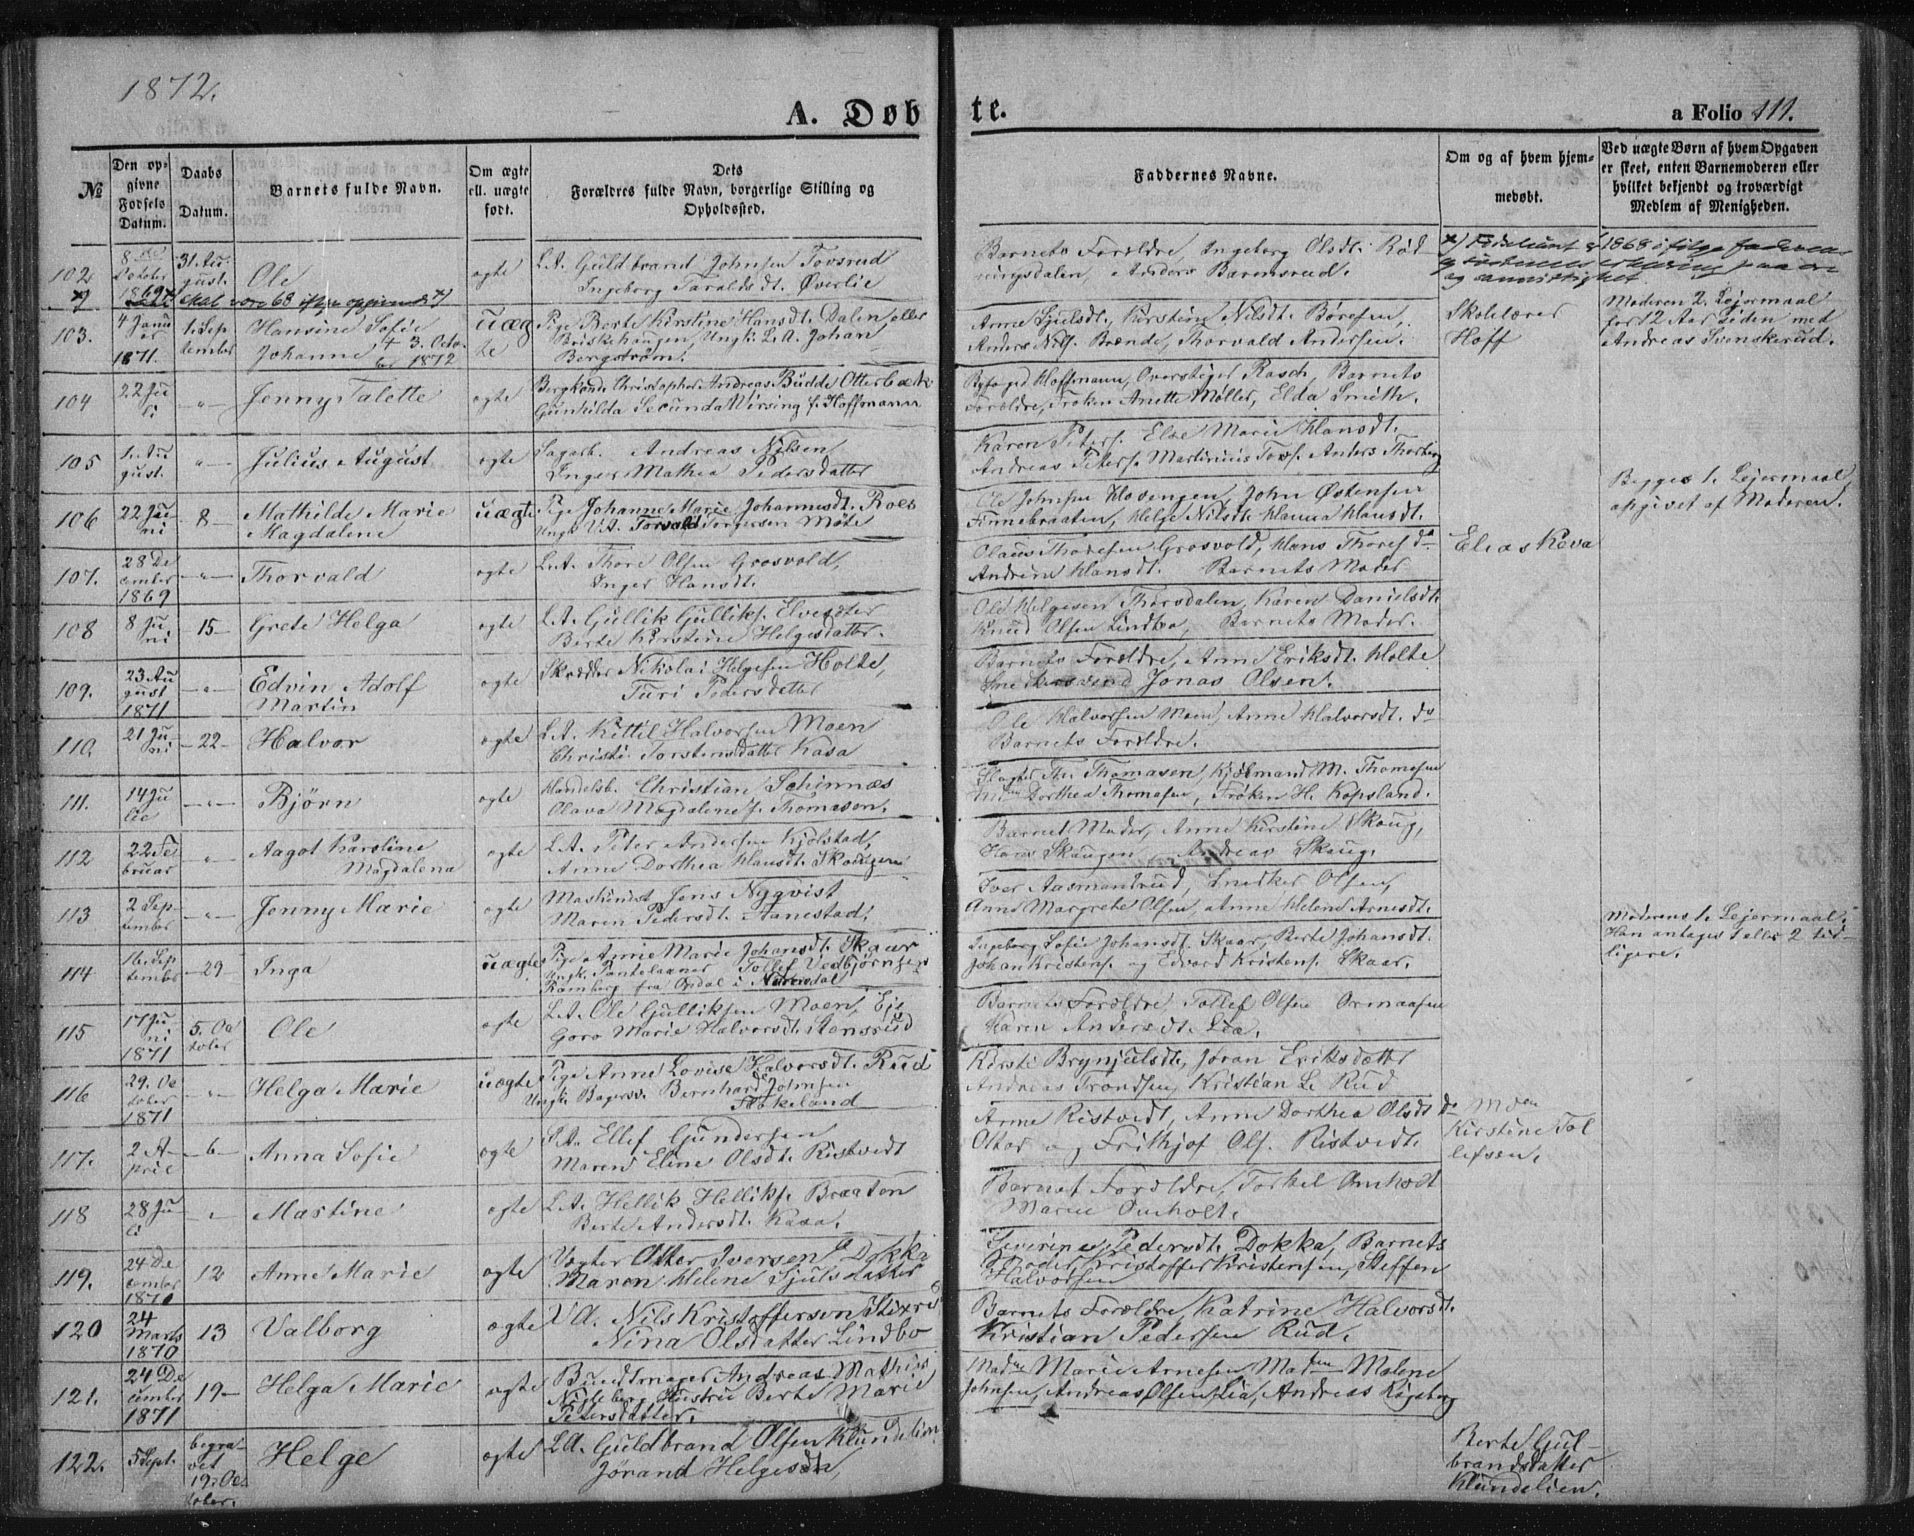 1872.
A. Døb
te.
a Folio 111.
№
Den opgivne Fødsels Datum.
Daabs Datum.
Barnets fulde Navn.
Om ægte ell. uægte født.
Dets Forældres fulde Navn, borgerlige Stilling og Opholdssted.
Faddernes Navne.
Om og af hvem hjemmedøbt.
Ved uægte Børn af hvem Opgaven er skeet, enten Barnemoderen eller hvilket bekjendt og troværdigt Medlem af Menigheden.
102
8de October 1869
31. August.
Ole
ægte
L.A. Guldbrand Johnsen Tovsrud
Ingeborg Taraldsdt. Øverlie
Barnets Forældre, Ingeborg Olsdt.
Anders Barmsrud.
103.
4 Januar 1871.
1. September
Hansine Sofie
Johanne
+ 3. Octo. 1872
uægte
Pige Berte Kirstine Hansdt. Dalen eller
Briskehaugen, Ungk. L.A. Johan
Bergstrøm.
Anne Sjulsdt., Kirstein Nilsdt. Børesen,
Anders Nils. Brænde, Thorvald Andersen.
Skolelærer
Hoff
Moderen 2. Lejermaal
for 12 Aar siden med
Andreas Svenskerud.
104
22 Juli
"
Jenny Talette
ægte
Bergkand. Christopher Andreas Budde Otterbæk
Gunhilda Secunda Wirsing f. Hoffmann
Byfoged Hoffmann, Overstiger Rasch, Barnets
Forældre, Frøken Anette Møller, Elda Smith.
105
1. August.
"
Julius August
ægte
Sagarb. Andreas Nilsen
Inger Mathea Pedersdatter
Karen Peters. Else Marie Hansdt.
Andreas Peters. Martinius Tors. Anders Thorberg
106
22 Juni
8
Mathilde Marie
Magdalene
uægte
Pige Johanne Marie Johannesdt. Roes
Ungk. L.A. Torvald Torgersen Møte
Ole Johnsen Hovengen, John Østensen
Finnebraaten, Helge Nilsdt. Hanna Hansdt.
Begges 1. Lejermaal,
opgivet af Moderen.
107.
28 December 1869
"
Thorvald
ægte
L.A. Thore Olsen Grosvold,
Inger Hansdt.
Olaus Thoresen Grosvold, Hans Thores. do
Andrine Hansdt. Barnets Moder
Elias Keva
108
8 Juni
15
Grete Helga
ægte
L.A. Gullik Gulliks. Elvesæter
Berte Kirstine Helgesdatter.
Ole Helgesen Thorsdalen, Karen Danielsdt.
Knud Olsen Lindbo, Barnets Moder.
109.
23 August 1871
"
Edvin Adolf
Martin
ægte
Skrædder Nikolai Helgesen Holte,
Turi Pedersdatter
Barnets Forældre, Anne Eriksdt. Holte
Snedkersvend Jonas Olsen.
110.
21 Juni
22
Halvor
ægte
L.A. Kittil Halvorsen Moen
Christi Torstensdatter Kasa
Ole Halvorsen Moen, Anne Halvorsdt. do
Barnets Forældre.
111.
14 Julie
"
Bjørn
ægte
Handelsb. Christian Schinnæs
Olava Magdalene f. Thomasen.
Slagter Th. Thomasen, Kjøbmand M. Thomesen
Mdm. Dorthea Thomesen, Frøken H. Kopsland.
112
22 Februar
"
Aagot Karoline
Magdalena
ægte
L.A. Peter Andersen Kjølstad,
Anne Dorthea Hansdt. Skougen
Barnet Moder, Anne Kirstine Skoug,
Hans Skougen, Andreas Skoug.
113
2 September
"
Jenny Marie
ægte
Maskinist Jens Nyqvist
Maren Pedersdt. Aanestad,
Iver Aasmantrud, Snedker Olsen,
Anne Margrete Olsen, Anne Helene Arnesdt.
114
16. September
29
Inga
uægte
Pige Anne Marie Johansdt. Skaar
Ungk. Tollef Vedbjørnsen
Ramberg fra Opdal i Numedal
Ingeborg Sofie Johansdt. Skaar, Berte Johansdt.
Johan Kristens. og Edvard Kristens. Skaar.
Moderens 1. Lejermaal.
Han antages 1 eller 2 tidligere.
115
17 Juni 1871
5. October
Ole
ægte
L.A. Ole Gulliksen Moen, Eje
Goro Marie Halvorsdt. Stensrud
Barnets Forældre Tollef Olsen Ormaasen
Karen Andersdt. Lia.
116
29. October 1871
"
Helga Marie
uægte
Pige Anne Lovise Halvorsdt. Rud
Ungk. Bagersv. Bernhard Johnsen
Flokeland
Kirsti Brynjulsdt., Joran Eriksdatter
Andreas Trondsen, Kristian L. Rud
117.
2 April
6
Anna Sofie
ægte
L.A. Ellef Gundersen
Maren Eline Olsdt. Ristvedt
Anne Ristvedt, Anne Dorthea Olsdt do
Oltor og Frithjof Ols. Ristvedt.
Mdm
Kirstine Tollefsen.
118
28 Juli
"
Mastine
ægte
L.A. Hellik Helliks. Braaten
Berte Andersdt. Kasa.
Barnet Forældre, Torkel Omholt
Marie Omholt.
119.
24 December 1870
12
Anne Marie
ægte
Vægter Otter Iversen Dokka
Maren Helene Sjulsdatter
Severine Pedersdt. Dokka, Barnets
Moder, Kristoffer Kristensen, Steffen
Halvorsen
120
24 Marts 1870
13
Valborg
ægte
V.A. Nils Kristoffersen Stixrud
Nina Olsdatter Lindbo
Barnets Forældre, Katrine Halvorsdt.
Kristian Pedersen Rud.
121.
24 December 1871
19
Helga Marie
ægte
Bundtmager Andreas Mathias
Nigleberg, Hustru Berte Marie
Petersdatter.
Madme Marie Arnesen Madmm Malene
Johnsen, Andreas Olsen Lia, Andreas Rigsberg
122.
5 Sept.
begravet 19. October.
Helge
ægte
L.A. Guldbrand Olsen Klundelien
Jørand Helgesdt.
Berte Gulbrandsdatter
Klundelien.